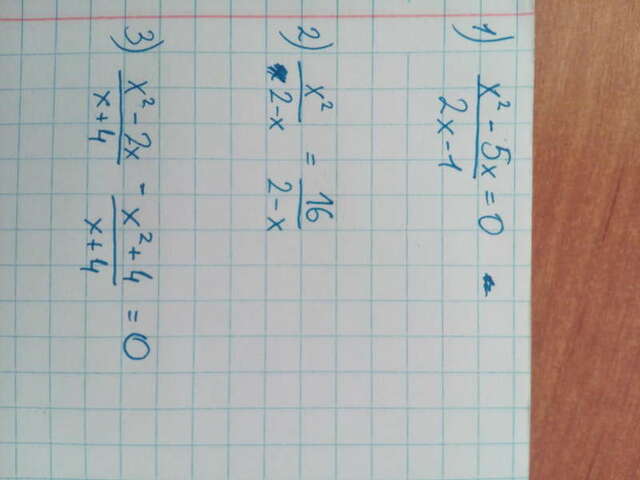 1) (x² - 5x)/(2x-1) = 0
2) x²/(2-x) = 16/(2-x)
3) (x² - 2x)/(x+4) - (x²+4)/(x+4) = 0